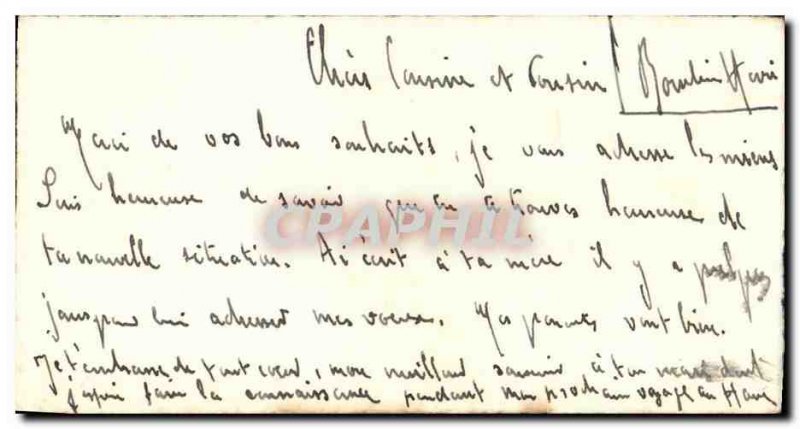 Chers Cousine et Cousin
Merci de vos bons souhaits, je vous adresse les miens
Suis heureuse de savoir que tu te trouves heureuse de
CPAPHIL
ta nouvelle situation. Ai écrit à ta mère il y a quelques
jours pour lui adresser mes voeux. Mes parents vont bien.
Je t'embrasse de tout coeur, mon meilleur souvenir à ton mari dont
j'espère faire la connaissance pendant mon prochain voyage au Havre